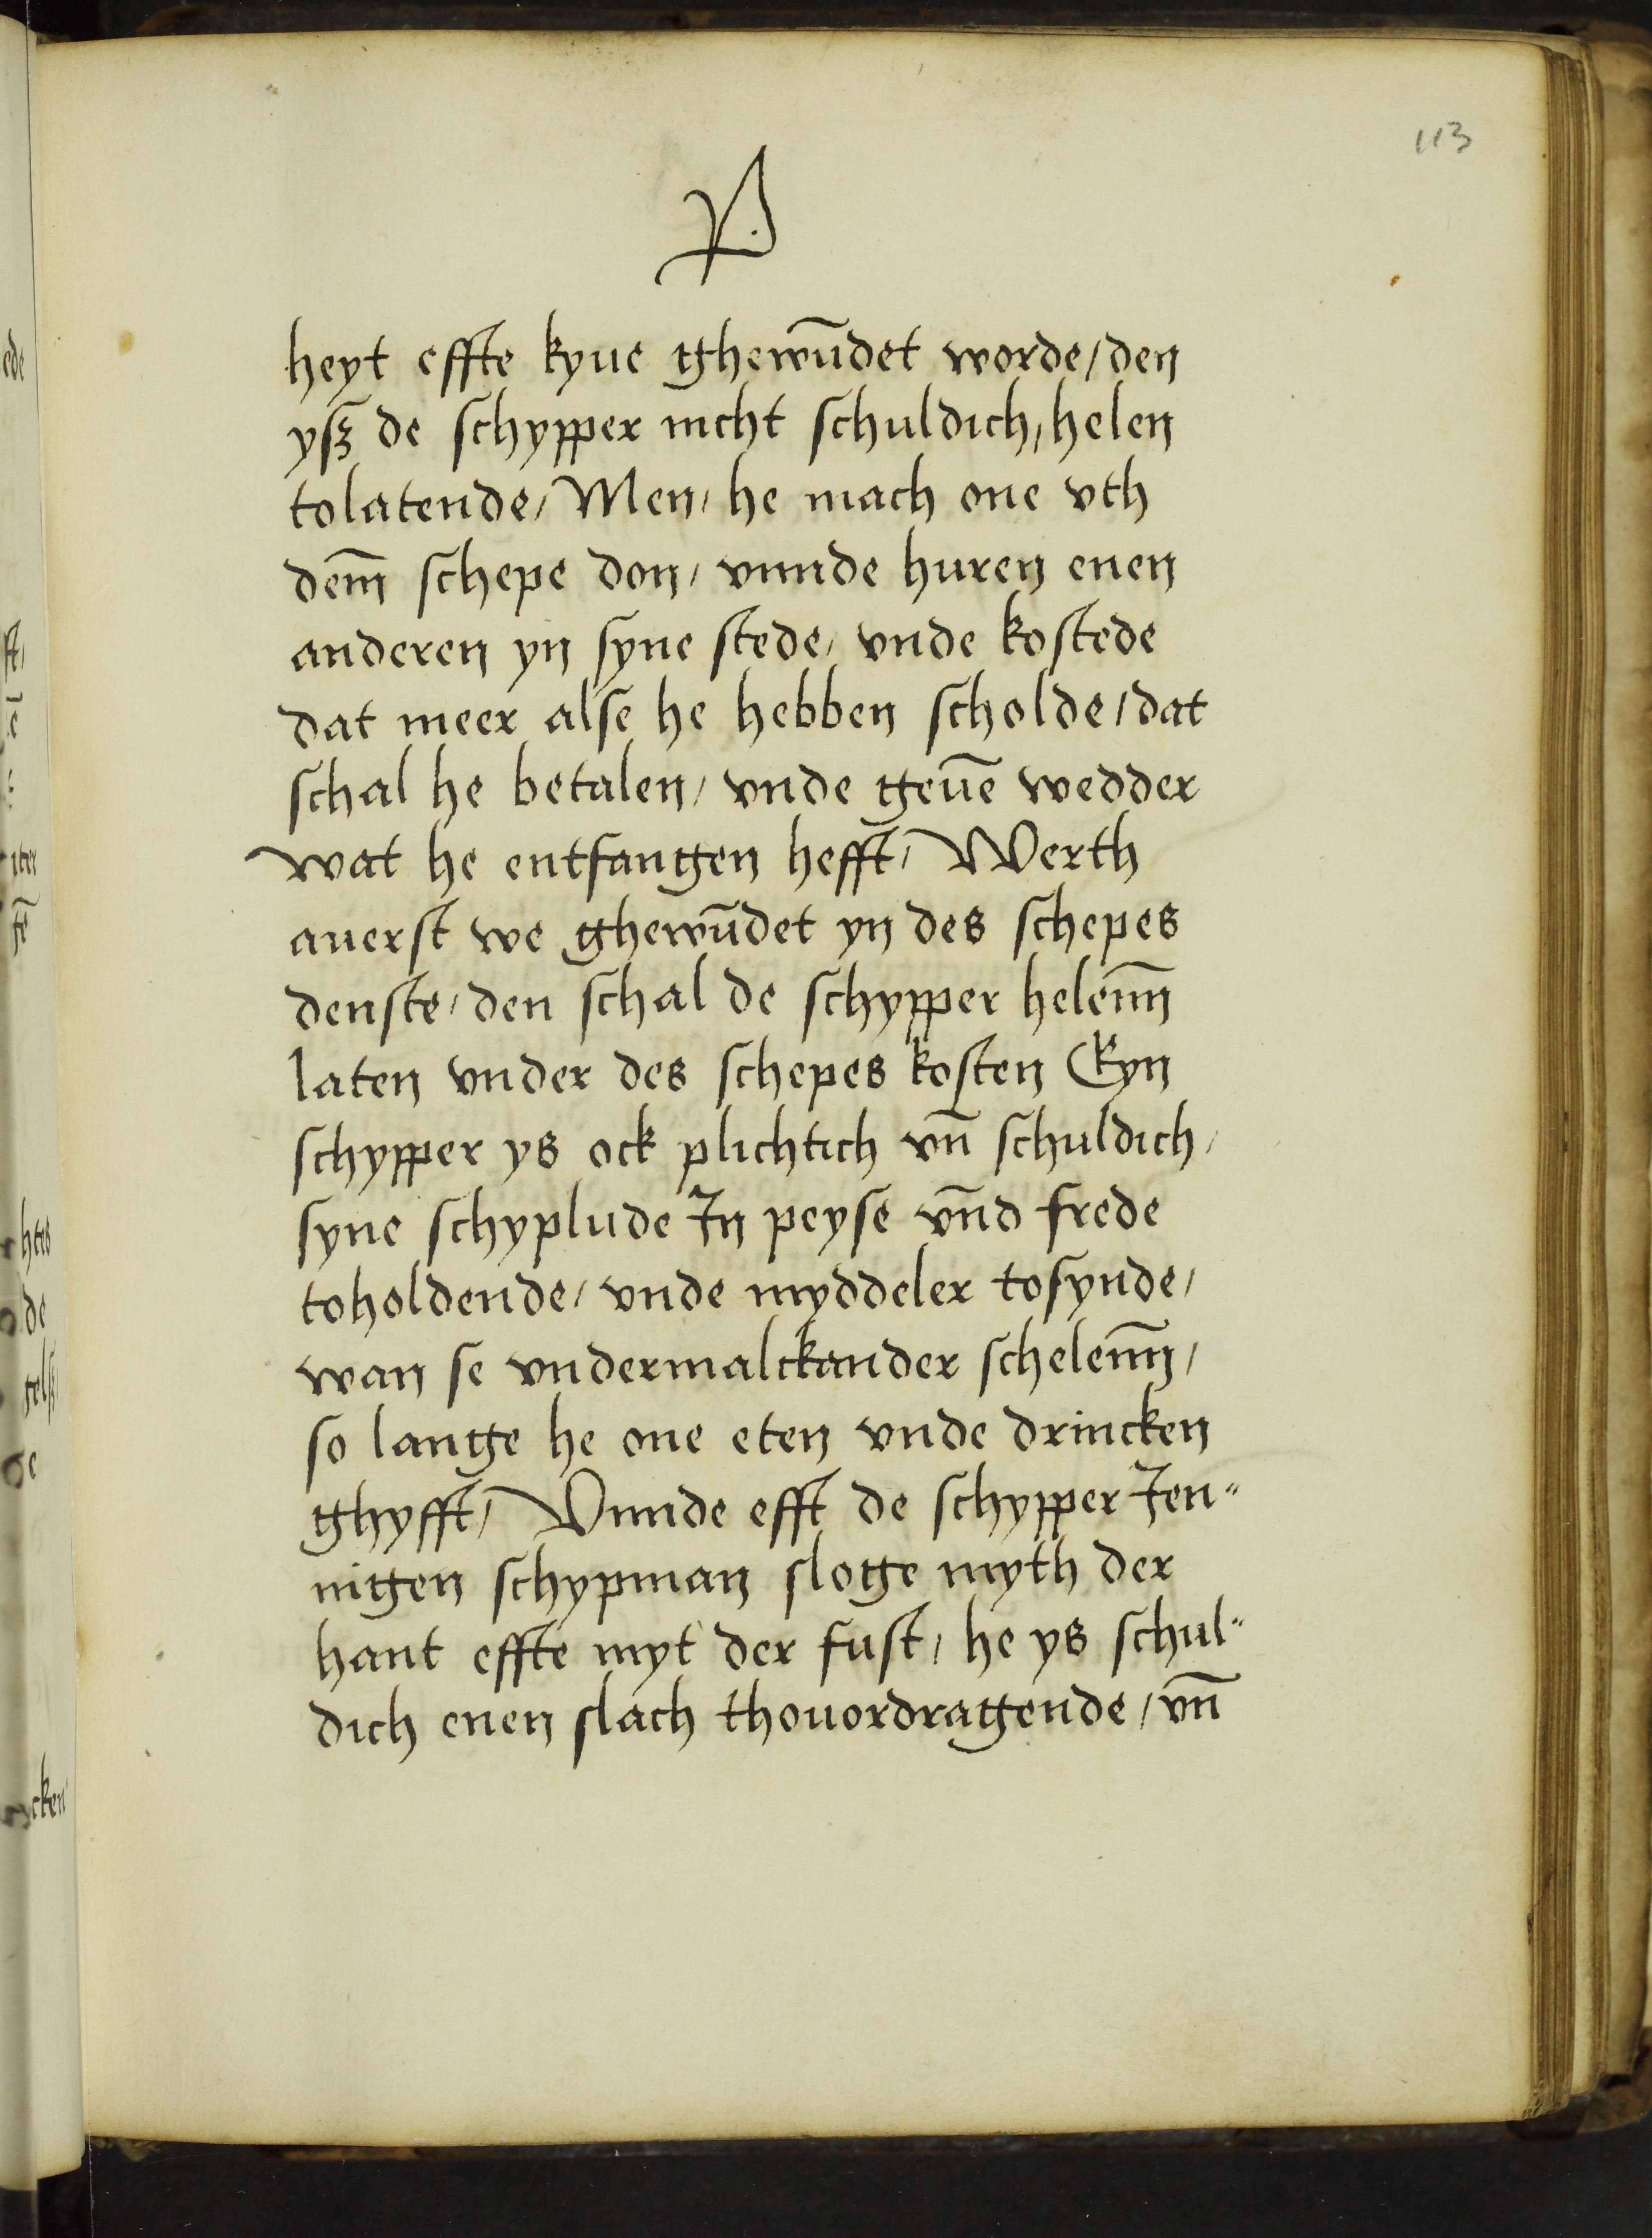 113
heyt effte kyue ghewu̅det worde / den
ysz de schypper nicht schuldich, helen
tolatende / Men / he mach one vth
dem̅ schepe don / vnnde huren enen
anderen yn syne stede / vnde kostede
dat meer alse he hebben scholde / dat
schal he betalen / vnde geue̅ wedder
wat he entfangen hefft / Werth
auerst we ghewu̅det yn des schepes
denste / den schal de schypper helenn̅
laten vnder des schepes kosten Eyn
schypper ys ock plichtich vn̅ schuldich /
syne schyplude In peyse vn̅d frede
toholdende / vnde myddeler tosynde /
wan se vndermalckander schelenn̅ /
so lange he one eten vnde drincken
ghyfft / Vnnde efft de schypper Jen=
nigen schypman sloge myth der
hant effte myt der fust / he ys schul=
dich enen slach thouordragende / vn̅